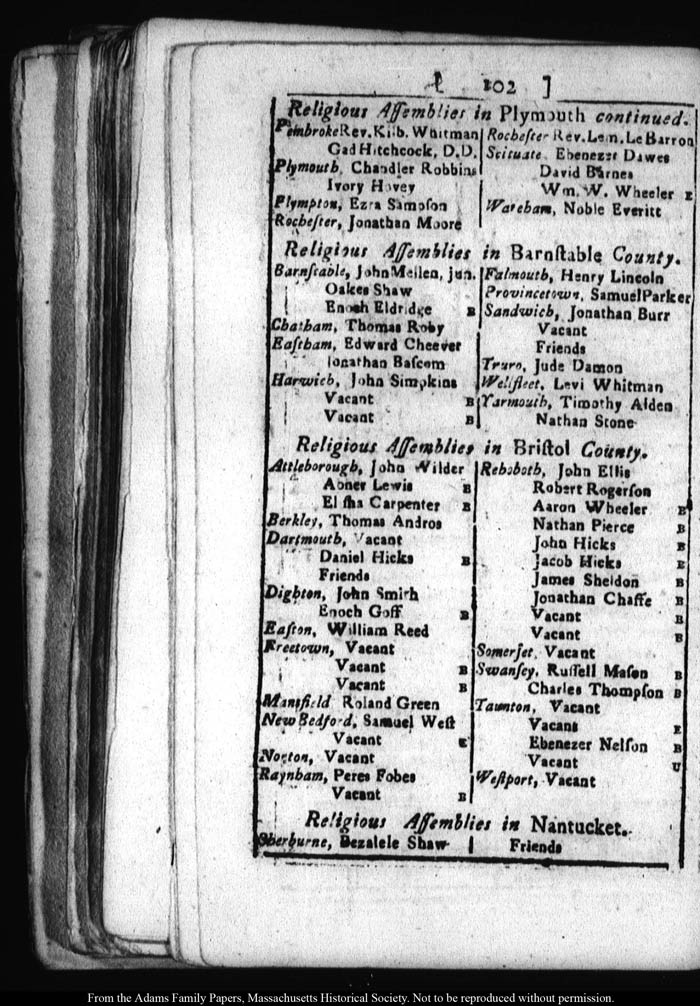 [ 102 ]
Religious Aſſemblies in Plymouth continued.
Pembroke Rev. Kilb. Whitman
Gad Hitchcock, D.D.
Plymouth, Chandler Robbins
Ivory Hovey
Plympton, Ezra Sampſon
Rocheſter, Jonathan Moore
Rocheſter Rev. Lem. Le Barron
Scituate, Ebenezer Dawes
David Barnes
Wm. W. Wheeler E
Wareham, Noble Everitt
Religious Aſſemblies in Barnſtable County.
Barnſtable, John Mellen, jun.
Oakes Shaw
Enoch Eldridge B
Chatham, Thomas Roby
Eaſtham, Edward Cheever
Jonathan Baſcom
Harwich, John Simpkins
Vacant B
Vacant B
Falmouth, Henry Lincoln
Provincetown, Samuel Parker
Sandwich, Jonathan Burr
Vacant
Friends
Truro, Jude Damon
Wellfleet, Levi Whitman
Yarmouth, Timothy Alden
Nathan Stone
Religious Aſſemblies in Briſtol County.
Attleborough, John Wilder
Abner Lewis B
Eliſha Carpenter B
Berkley, Thomas Andros
Dartmouth, Vacant
Daniel Hicks B
Friends
Dighton, John Smith
Enoch Goff B
Eaſton, William Reed
Freetown, Vacant
Vacant B
Vacant B
Mansfield Roland Green
New Bedford, Samuel Weſt
Vacant E
Norton, Vacant
Raynham, Peres Fobes
Vacant B
Rehoboth, John Ellis
Robert Rogerſon
Aaron Wheeler B
Nathan Pierce B
John Hicks B
Jacob Hicks E
James Sheldon B
Jonathan Chaffe B
Vacant B
Vacant B
Somerſet, Vacant
Swanſey, Ruſſell Maſon B
Charles Thompſon B
Taunton, Vacant
Vacant E
Ebenezer Nelſon B
Vacant U
Weſtport, Vacant
Religious Aſſemblies in Nantucket.
Sherburne, Bezalele Shaw
Friends
From the Adams Family Papers, Massachusetts Historical Society. Not to be reproduced without permission.